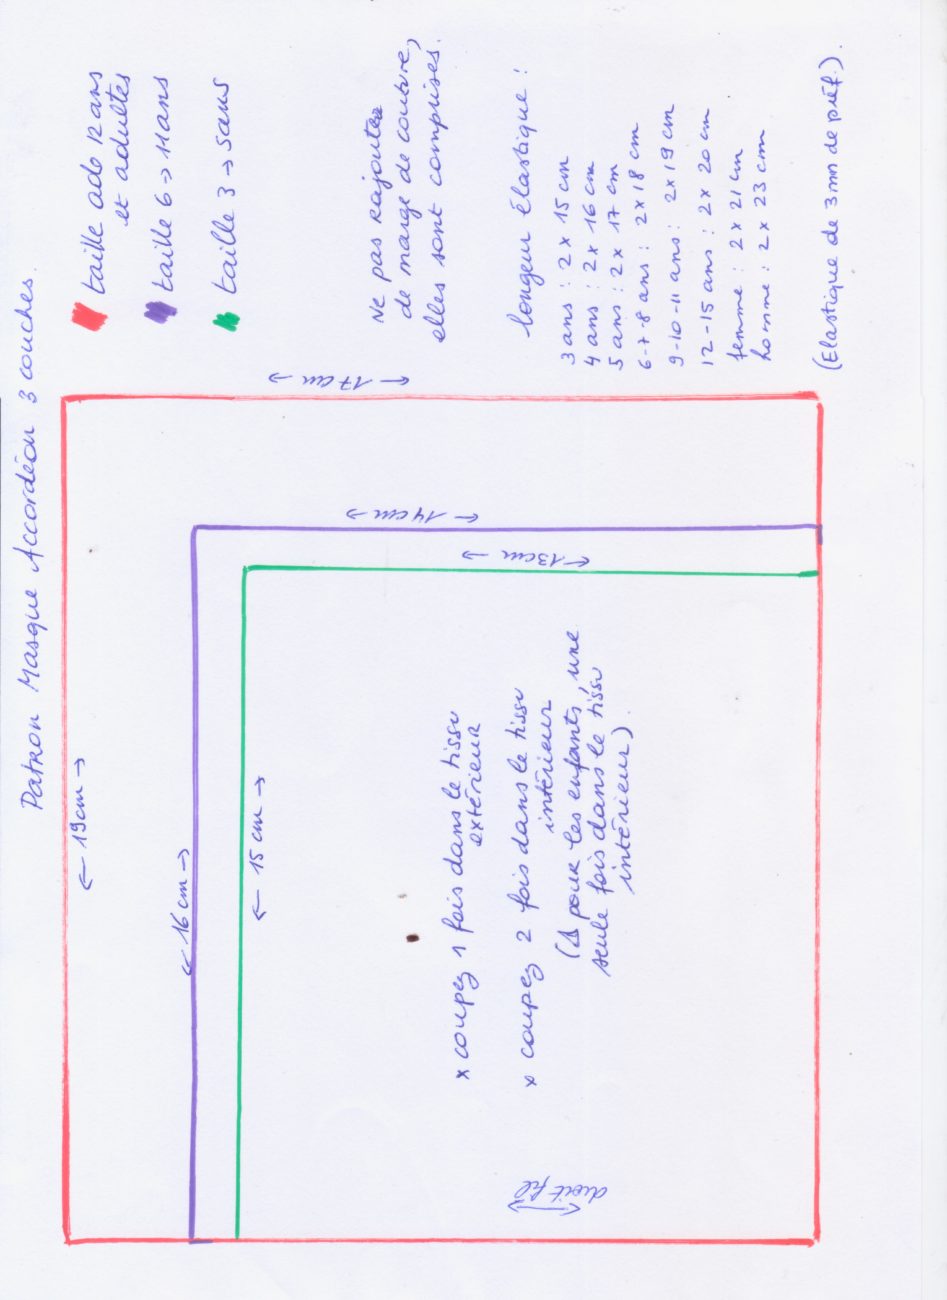 Patron Masque Accordéon 3 couches.
taille ado 12 ans
et adultes
taille 6 → 11 ans
taille 3 → 5 ans
Ne pas rajouter
de marge de couture,
elles sont comprises.
longeur élastique :
3 ans : 2 x 15 cm
4 ans : 2 x 16 cm
5 ans : 2 x 17 cm
6-7-8 ans : 2 x 18 cm
9-10-11 ans : 2 x 19 cm
12-15 ans : 2 x 20 cm
femme : 2 x 21 cm
homme : 2 x 23 cm
(Elastique de 3 mm de préf.).
← 17 cm →
← 14 cm →
← 13 cm →
← 19 cm →
← 16 cm →
← 15 cm →
x coupez 1 fois dans le tissu
extérieur
x coupez 2 fois dans le tissu
intérieur
(⚠ pour les enfants, une
seule fois dans le tissu
intérieur)
droit fil